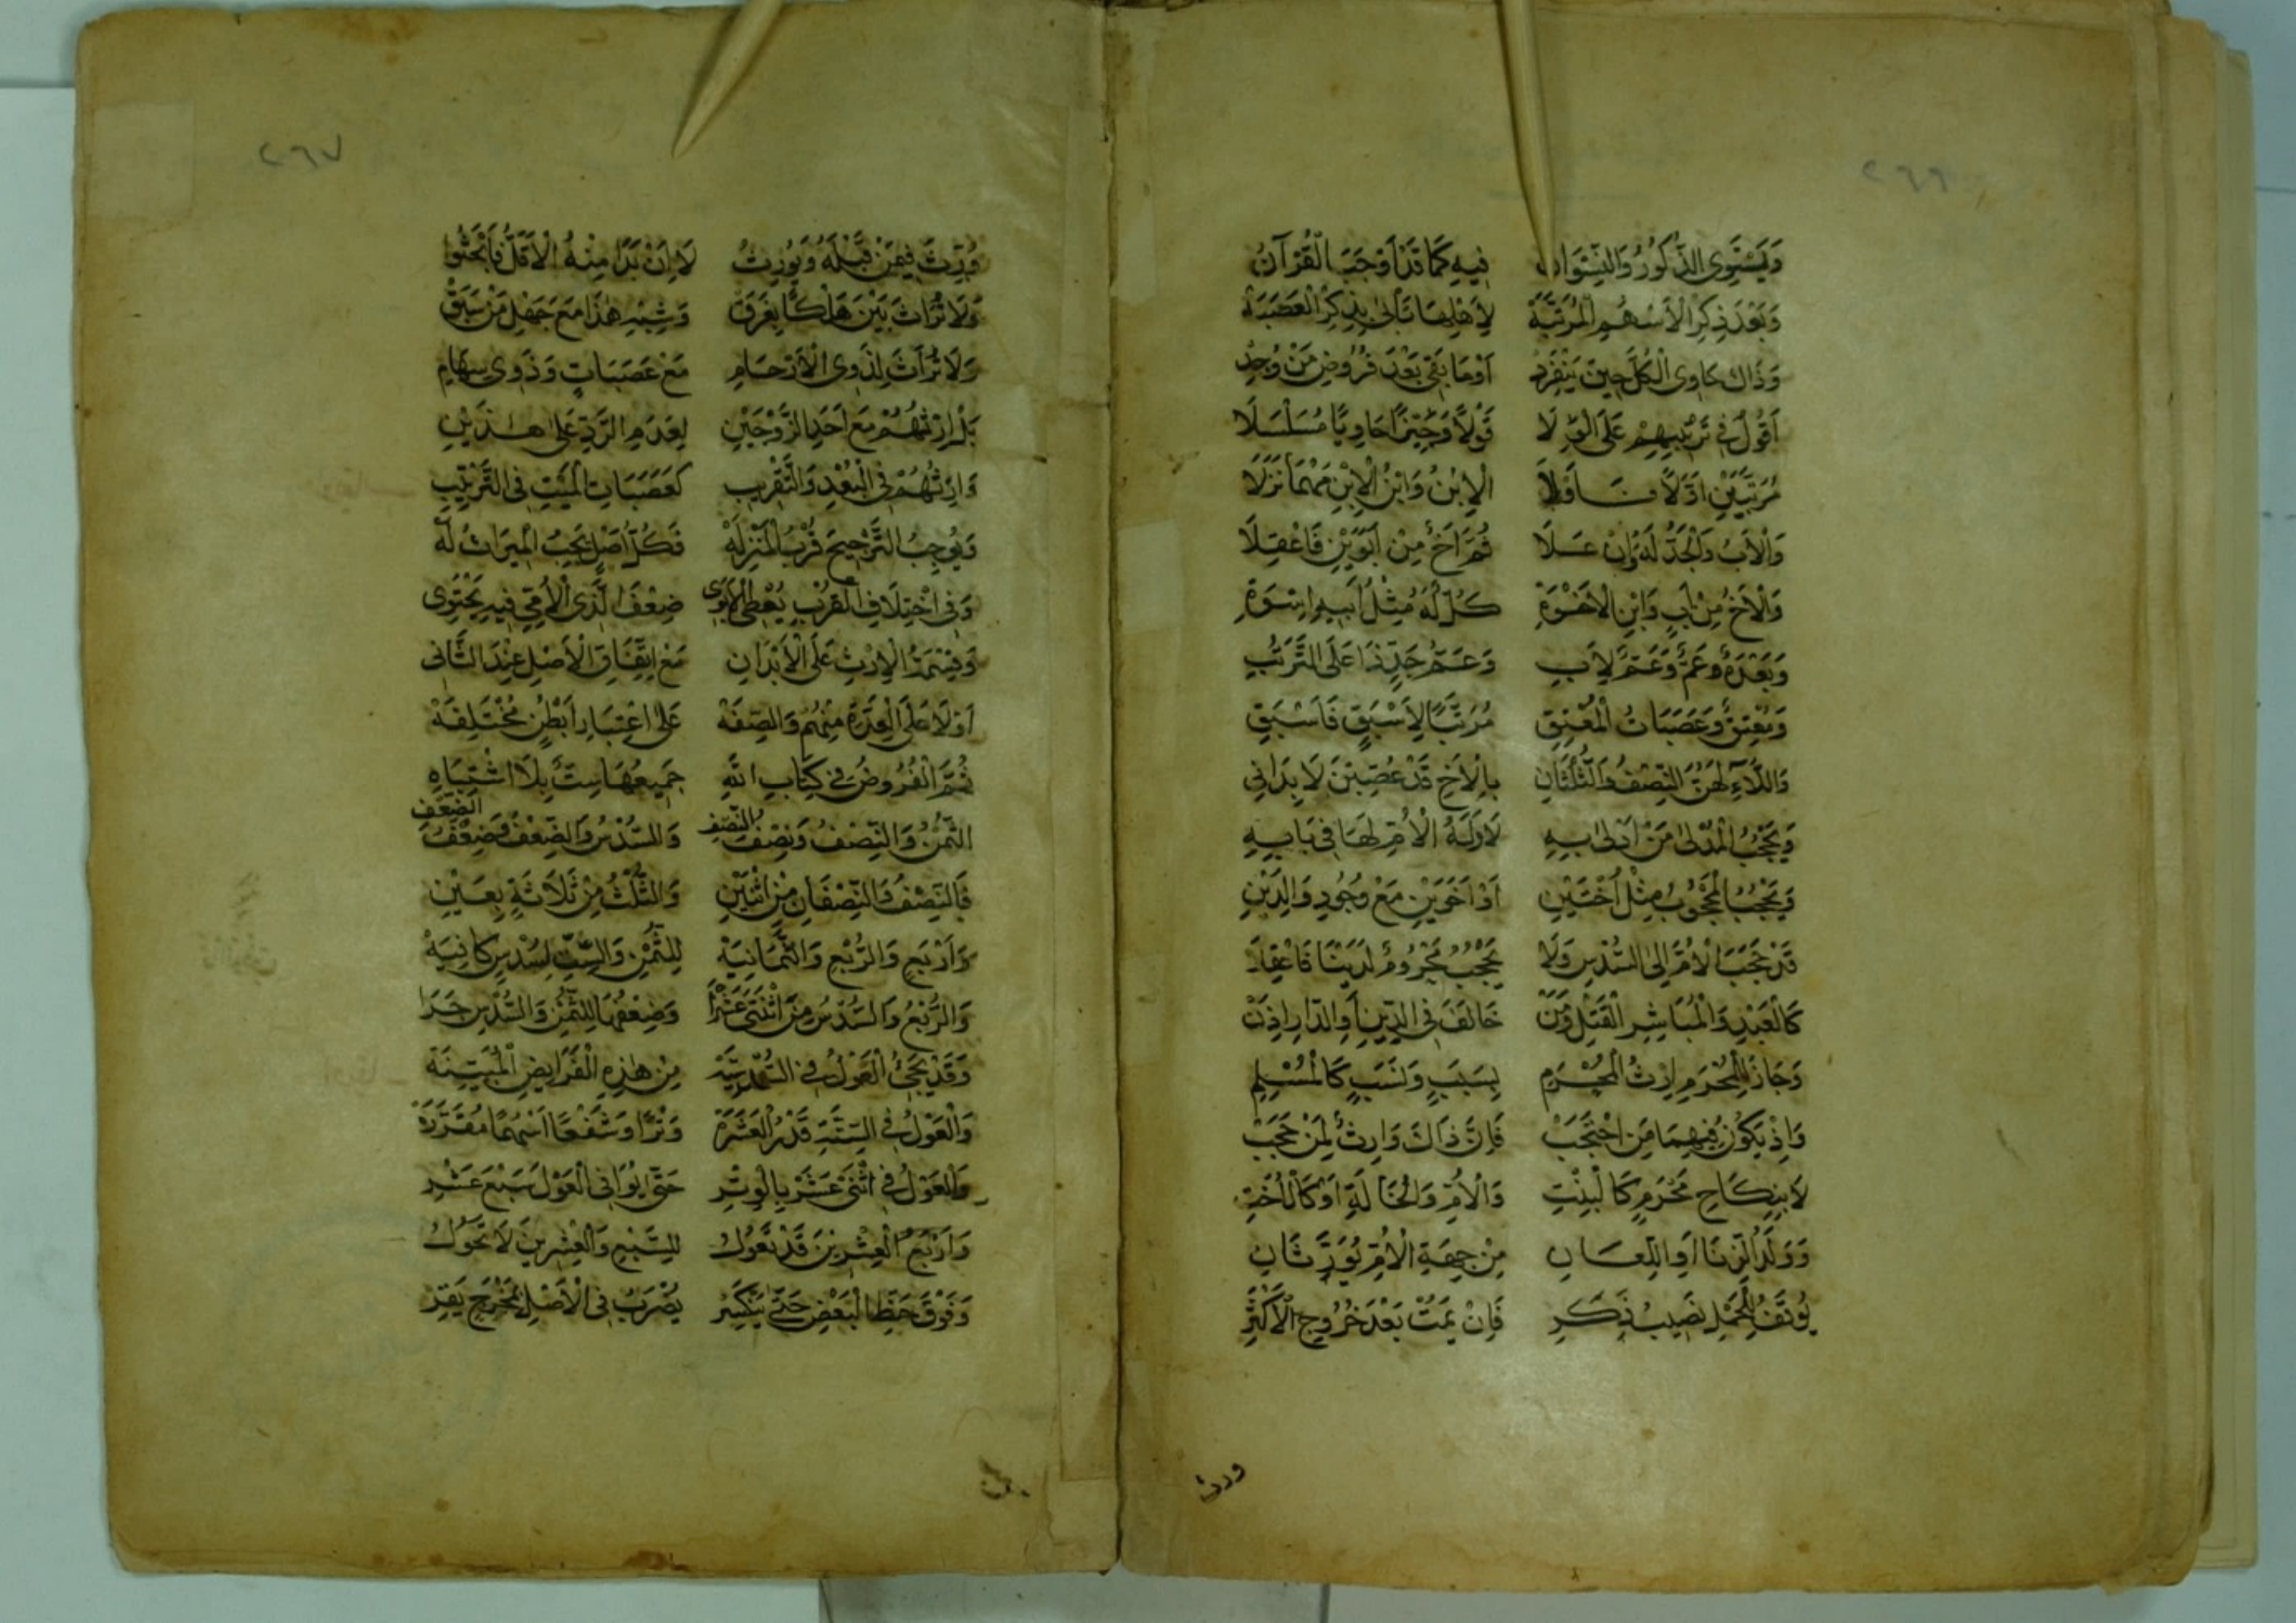 ٢٦٦
وَيَسْتَوِي الذُّكُورُ وَالنِّسْوَانُ فِيهِ كَمَا قَدْ أَوْجَبَ الْقُرْآنُ
وَبَعْدَ ذِكْرِ الْأَسْهُمِ الْمُرَتَّبَةْ لِأَهْلِهَا نَأْتِي بِذِكْرِ الْعَصَبَةْ
وَذَاكَ حَاوِي الْكُلِّ حِينَ يَنْفَرِدْ أَوْ مَا بَقِيَ بَعْدَ فُرُوضِ مَنْ وُجِدْ
أَقُولُ فِي تَرْتِيبِهِمْ عَلَى الْوِلَا قَوْلًا وَجِيزًا حَاوِيًا مُسَلْسَلَا
مُرَتَّبِينَ أَوَّلًا فَأَوَّلَا الْإِبْنُ وَابْنُ الْإِبْنِ مَهْمَا نَزَلَا
وَالْأَبُ وَالْجَدُّ لَهُ وَإِنْ عَلَا ثُمَّ أَخٌ مِنْ أَبَوَيْنِ فَاعْقِلَا
وَالْأَخُ مِنْ أَبٍ وَابْنِ الْأَخْوَةِ كُلٌّ لَهُ مِثْلُ أَبِيهِ إِسْوَةِ
وَبَعْدَهُ عَمٌّ وَعَمٌّ لِأَبِ وَعَمُّ جَدٍّ ذَا عَلَى التَّرَتُّبِ
وَمُعْتِقٌ وَعَصَبَاتُ الْمُعْتِقِ مُرَتَّبًا لِأَسْبَقٍ فَأَسْبَقِ
وَاللَّاءِ لَهُنَّ النِّصْفُ وَالثُّلْثَانِ بِالْأَخِ قَدْ عُصِّبْنَ لَا يُدَانِي
وَيَحْجُبُ الْمُدْلَى مَنْ أَدْلَى بِهِ لَا وَلَدُ الْأُمِّ لَهَا فِي بَابِهِ
وَيَحْجُبُ الْمَحْجُوبُ مِثْلُ أُخْتَيْنِ أَوْ أَخَوَيْنِ مَعْ وُجُودِ وَالِدَيْنِ
قَدْ حَجَبَ الْأُمَّ إِلَى السُّدْسِ وَلَا يَحْجُبُ مَحْرُومٌ لَدَيْنَا فَاعْقِلَا
كَالْعَبْدِ وَالْمُبَاشِرِ الْقَتْلَ وَمَنْ خَالَفَ فِي الدِّينِ أَوِ الدَّارِ إِذَنْ
وَجَازَ لِلْمُحْرِمِ إِرْثُ الْمُحْرِمِ بِسَبَبٍ وَنَسَبٍ كَالْمُسْلِمِ
وَإِذْ يَكُونُ فِيهِمَا مَنْ احْتَجَبْ فَإِنَّ ذَاكَ وَارِثٌ لِمَنْ حَجَبْ
لَا بِنِكَاحِ مَحْرَمٍ كَالْبِنْتِ وَالْأُمِّ وَالْخَالَةِ أَوْ كَالْأُخْتِ
وَوَلَدُ الزِّنَا أَوِ اللِّعَانِ مِنْ جِهَةِ الْأُمِّ يُوَرَّثَانِ
يُوقَفُ لِلْحَمْلِ نَصِيبُ ذَكَرِ فَإِنْ يَمُتْ بَعْدَ خُرُوجِ الْأَكْثَرِ
ورث
٢٦٧
وُرِّثَ فِيمَنْ قَبْلَهُ وَيُورِثُ لَا إِنْ بَدَا مِنْهُ الْأَقَلُّ فَابْحَثُوا
وَلَا تُرَاثَ بَيْنَ هَلْكَى بِغَرَقْ وَشِبْهِ هٰذَا مَعَ جَهْلِ مَنْ سَبَقْ
وَلَا تُرَاثَ لِذَوِي الْأَرْحَامِ مَعْ عَصَبَاتٍ وَذَوِي سِهَامِ
بَلْ إِرْثُهُمْ مَعْ أَحَدِ الزَّوْجَيْنِ لِعَدَمِ الرَّدِّ عَلَى هٰذَيْنِ
وَإِرْثُهُمْ فِي الْبُعْدِ وَالتَّقْرِيبِ كَعَصَبَاتِ الْمَيْتِ فِي التَّرْتِيبِ
وَيُوجِبُ التَّرْجِيحَ قُرْبُ الْمَنْزِلَهْ فَكُلُّ أَصْلٍ يَجِبُ الْمِيرَاثُ لَهْ
وَفِي اخْتِلَافِ الْقُرْبِ يُعْطَى الْأَبَوِي ضِعْفَ الَّذِي الْأُمِّيُّ فِيهِ يَحْتَوِي
وَقِسْمَةُ الْإِرْثِ عَلَى الْأَبْدَانِ مَعْ اتِّفَاقِ الْأَصْلِ عِنْدَ الثَّانِي
أَوْ لَا عَلَى الْعِدَّةِ مِنْهُمْ وَالصِّفَهْ عَلَى اعْتِبَارِ أَبْطُنٍ مُخْتَلِفَهْ
ثُمَّ الْفُرُوضُ فِي كِتَابِ اللّٰهِ جَمِيعُهَا سِتٌّ بِلَا اشْتِبَاهِ
الثُّمْنُ وَالنِّصْفُ وَنِصْفُ النِّصْفِ وَالسُّدْسُ وَالضِّعْفُ وَضِعْفُ الضِّعْفِ
فَالنِّصْفُ وَالنِّصْفَانِ مِنْ اثْنَيْنِ وَالثُّلْثُ مِنْ ثَلَاثَةٍ بِعَيْنِ
وَأَرْبَعٍ وَالرُّبْعِ وَالثَّمَانِيَهْ لِلثُّمْنِ وَالسِّتُّ لِسُدْسٍ كَافِيَهْ
وَالرُّبْعُ وَالسُّدْسُ مِنَ اثْنَتَيْ عَشْرَا وَضِعْفُهَا لِلثُّمْنِ وَالسُّدْسِ جَرَا
وَقَدْ يَجِيْءُ الْعَوْلُ فِي مِنْ هٰذِهِ الْفَرَايِضِ الْمُبَيَّنَةْ
وَالْعَوْلُ فِي السِّتَّةِ قَدْرُ الْعَشَرَةْ وَتْرًا وَشَفْعًا أَسْهُمًا مُقَرَّرَةْ
وَالْعَوْلُ فِي اثْنَيْ عَشَرْ بِالْوِتْرِ حَتَّى يُوَافِي الْعَوْلَ سَبْعَ عَشْرِ
وَأَرْبَعُ الْعِشْرِينَ قَدْ تَعُولُ لِلسَّبْعِ وَالْعِشْرِينَ لَا تَحُولُ
وَفَوْقَ حَظِّ الْبَعْضِ حَتَّى يَنْكَسِرْ يُضْرَبُ فِي الْأَصْلِ لِمَخْرَجٍ يَقِرْ